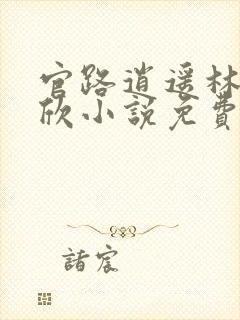 官路逍遥林
欣小說免費
諸宸